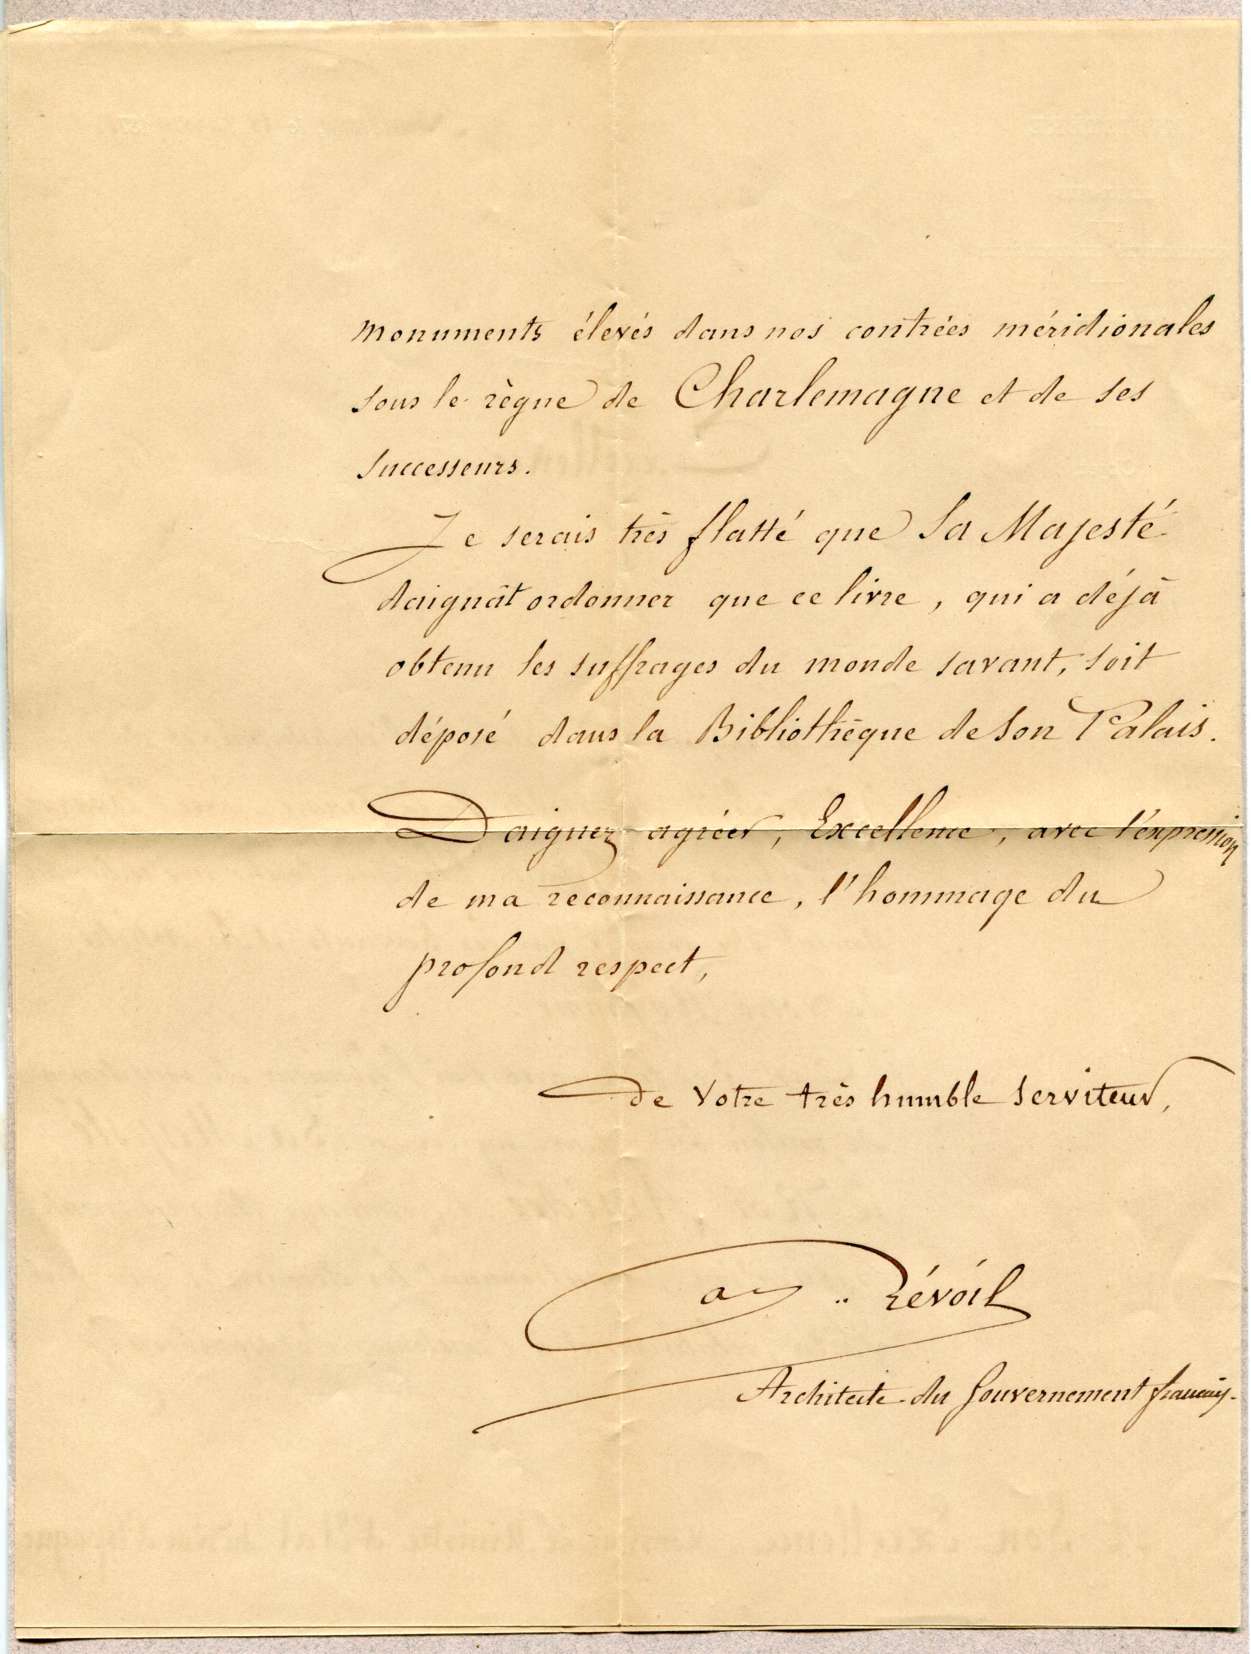 monuments élevés dans nos contrées méridionales
sous le règne de Charlemagne et de ses
successeurs.
Je serais très flatté que Sa Majesté
daignât ordonner que ce livre, qui a déjà
obtenu les suffrages du monde savant, soit
déposé dans la Bibliothèque de Son Palais.
Daignez agréer, Excellence, avec l'expression
de ma reconnaissance, l'hommage du
profond respect,
de Votre très humble Serviteur,
Révoil
Architecte du Gouvernement français.